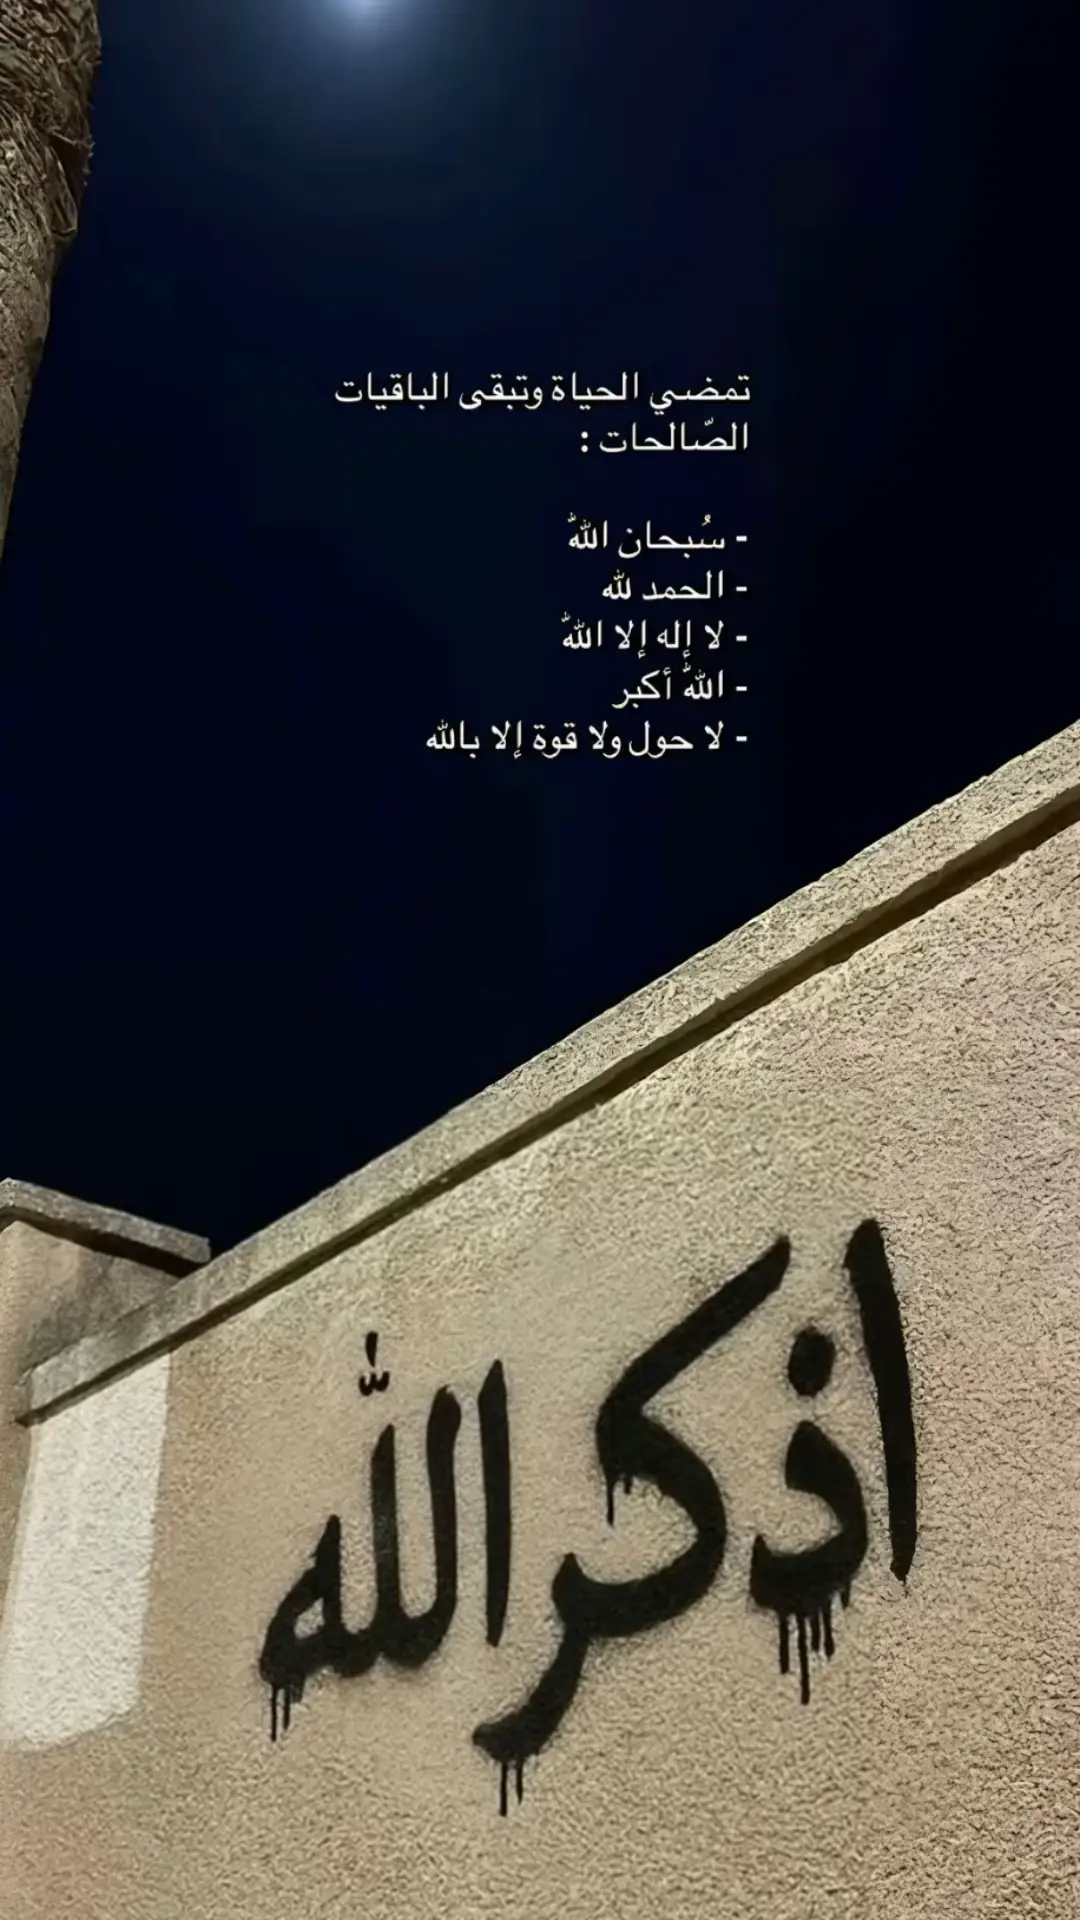 تمضي الحياة وتبقى الباقيات
الصّالحات :
- سُبحان اللّٰه
- الحمد لله
- لا إله إلا اللّٰه
- اللّٰه أكبر
- لا حول ولا قوة إلا بالله
اذكر اللّٰه